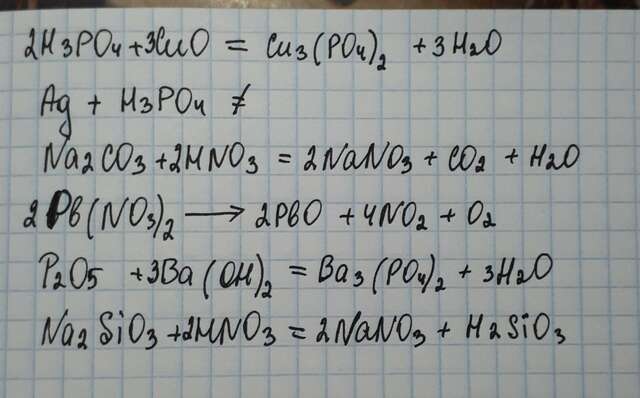 2H3PO4 + 3CuO = Cu3(PO4)2 + 3H2O
Ag + H3PO4 ≠
Na2CO3 + 2HNO3 = 2NaNO3 + CO2 + H2O
2Pb(NO3)2 ⟶ 2PbO + 4NO2 + O2
P2O5 + 3Ba(OH)2 = Ba3(PO4)2 + 3H2O
Na2SiO3 + 2HNO3 = 2NaNO3 + H2SiO3